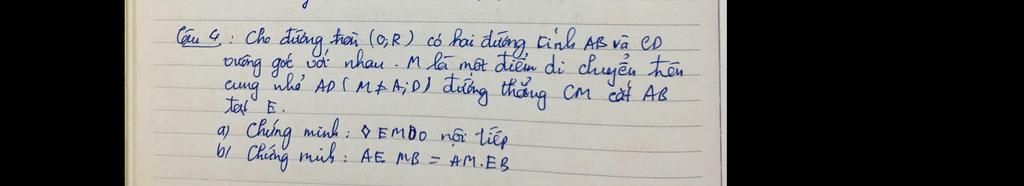 Câu 4 : Cho đường tròn (O,R) có hai đường kính AB và CD
vuông góc với nhau. M là một điểm di chuyển trên
cung nhỏ AD (M ≠ A; D) đường thẳng CM cắt AB
tại E.
a) Chứng minh : ◊ EMDO nội tiếp
b/ Chứng minh : AE MB = AM.EB